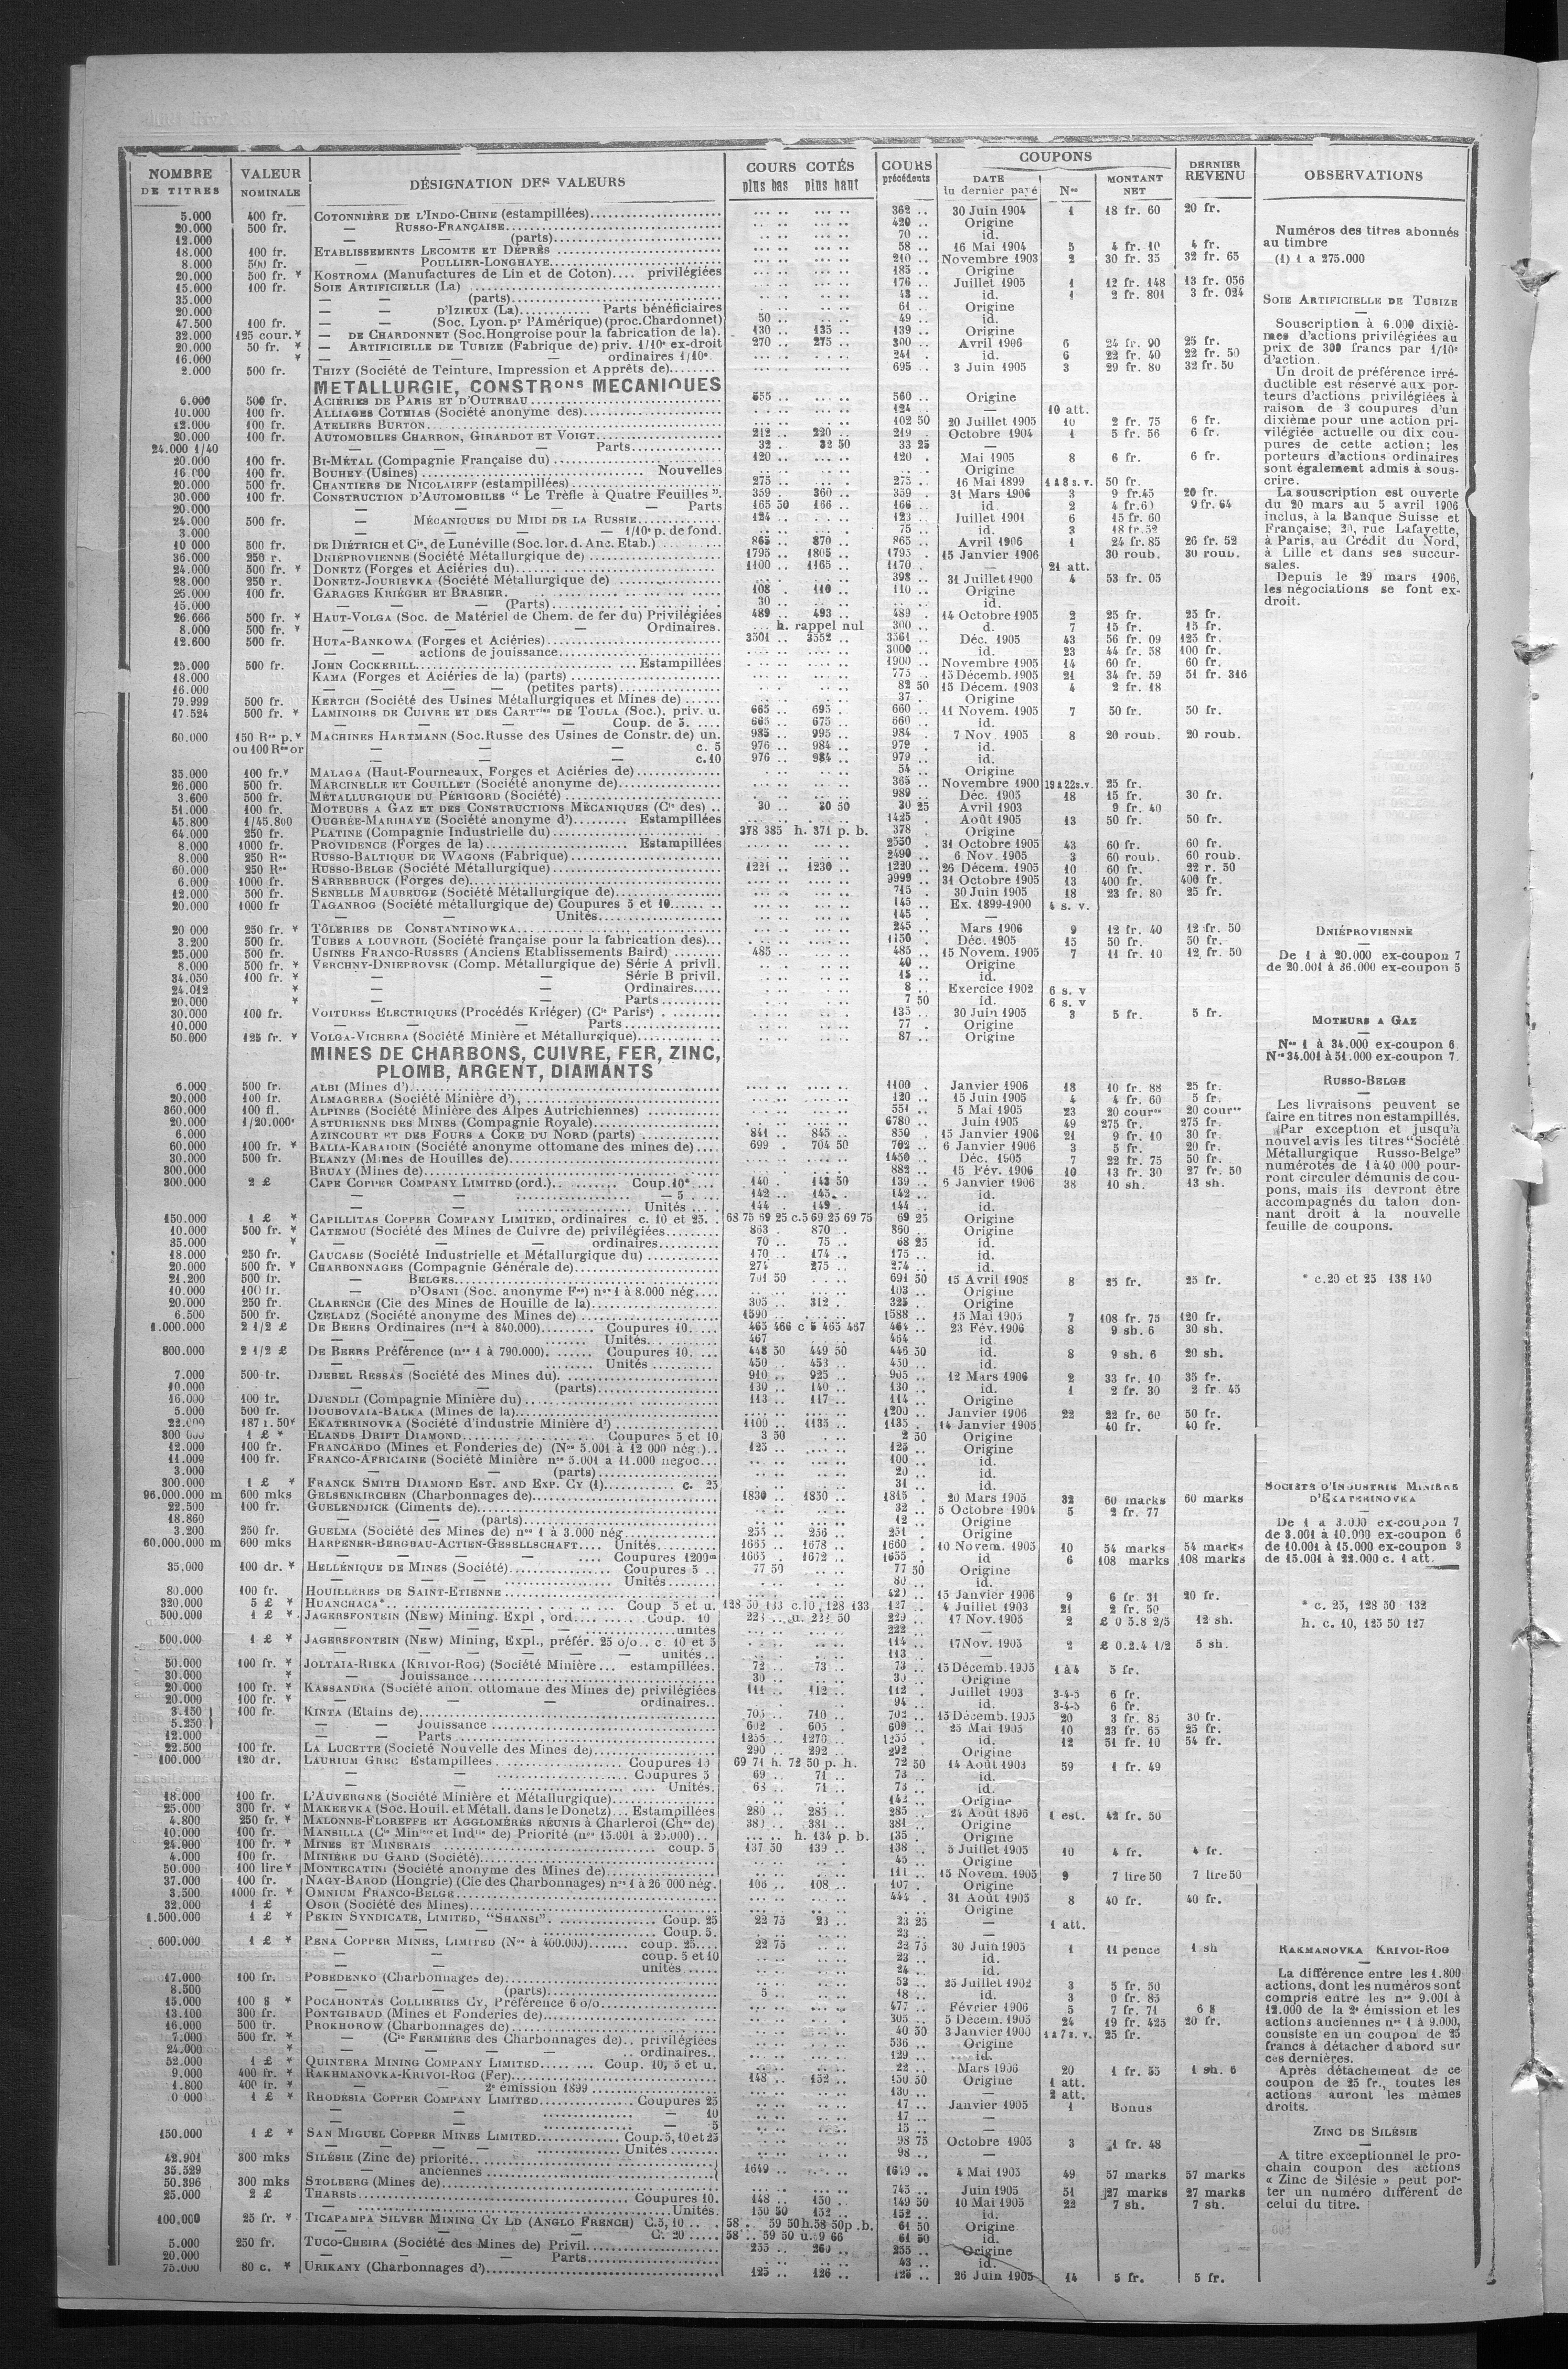 NOMBRE DE TITRES | VALEUR NOMINALE | DÉSIGNATION DES VALEURS | COURS COTÉS plus bas plus haut | COURS précédents | COUPONS DATE du dernier payé Nos MONTANT NET | DERNIER REVENU | OBSERVATIONS
5.000 400 fr. COTONNIÈRE DE L'INDO-CHINE (estampillées) 362 .. 30 Juin 1904 1 18 fr. 60 20 fr.
20.000 500 fr. — RUSSO-FRANÇAISE 420 .. Origine
12.000 — — (parts) 70 .. id.
18.000 100 fr. ETABLISSEMENTS LECOMTE ET DEPRÈS 58 .. 16 Mai 1904 5 4 fr. 10 4 fr.
8.000 500 fr. — POULLIER-LONGHAYE 210 .. Novembre 1903 2 30 fr. 35 32 fr. 65
20.000 500 fr. * KOSTROMA (Manufactures de Lin et de Coton).... privilégiées 185 .. Origine
15.000 100 fr. SOIE ARTIFICIELLE (La) 176 .. Juillet 1905 1 12 fr. 148 13 fr. 056
35.000 — — (parts) 43 .. id. 1 2 fr. 801 3 fr. 024
20.000 — — D'IZIEUX (La) Parts bénéficiaires 61 .. Origine
47.500 100 fr. — — (Soc. Lyon. pr l'Amérique) (proc. Chardonnet) 50 .. 49 .. id.
32.000 125 cour. * — DE CHARDONNET (Soc. Hongroise pour la fabrication de la). 130 .. 135 .. 139 .. Origine
20.000 50 fr. * — ARTIFICIELLE DE TUBIZE (Fabrique de) priv. 1/10e ex-droit 270 .. 275 .. 300 .. Avril 1906 6 24 fr. 90 25 fr.
16.000 * — — — — ordinaires 1/10e. 241 . id. 6 22 fr. 40 22 fr. 50
2.000 500 fr. THIZY (Société de Teinture, Impression et Apprêts de) 695 .. 3 Juin 1905 3 29 fr. 80 32 fr. 50
METALLURGIE, CONSTRons MECANIQUES
6.000 500 fr. ACIÉRIES DE PARIS ET D'OUTREAU 555 .. 560 .. Origine
10.000 100 fr. ALLIAGES COTHIAS (Société anonyme des) 124 .. — 10 att.
12.000 100 fr. ATELIERS BURTON 102 50 20 Juillet 1905 10 2 fr. 75 6 fr.
20.000 100 fr. AUTOMOBILES CHARRON, GIRARDOT ET VOIGT 212 .. 220 .. 219 . Octobre 1904 1 5 fr. 56 6 fr.
24.000 1/40 — — — Parts 32 . 32 50 33 25 —
20.000 100 fr. BI-MÉTAL (Compagnie Française du) 120 .. 120 . Mai 1905 8 6 fr. 6 fr.
16.000 100 fr. BOUHEY (Usines) Nouvelles Origine
20.000 500 fr. CHANTIERS DE NICOLAIEFF (estampillées) 275 .. 275 .. 16 Mai 1899 1 à 8 s. v. 50 fr.
30.000 100 fr. CONSTRUCTION D'AUTOMOBILES " Le Trèfle à Quatre Feuilles ". 359 . 360 .. 359 . 31 Mars 1906 3 9 fr. 45 20 fr.
20.000 — — — — Parts 165 50 166 .. 166 .. id 2 4 fr. 60 9 fr. 64
24.000 500 fr. — MÉCANIQUES DU MIDI DE LA RUSSIE 124 .. 123 .. Juillet 1901 6 15 fr. 60
3.000 — — — — 1/10e p. de fond. 75 .. id. 3 18 fr. 52
10 000 500 fr. DE DIÉTRICH et Cie, de Lunéville (Soc. lor. d. Anc. Etab.) 865 .. 870 .. 865 .. Avril 1906 1 24 fr. 85 26 fr. 52
36.000 250 r. DNIÉPROVIENNE (Société Métallurgique de) 1795 .. 1805 .. 1795 . 15 Janvier 1906 30 roub. 30 roub.
24.000 500 fr. * DONETZ (Forges et Aciéries du) 1100 .. 1165 .. 1170 . — 21 att.
28.000 250 r. DONETZ-JOURIEVKA (Société Métallurgique de) 398 .. 31 Juillet 1900 4 53 fr. 05
25.000 100 fr. GARAGES KRIÉGER ET BRASIER. 108 . 110 .. 110 .. Origine
15.000 — — — (Parts) 30 .. id.
26.666 500 fr. * HAUT-VOLGA (Soc. de Matériel de Chem. de fer du) Privilégiées 489 .. 493 .. 489 . 14 Octobre 1905 2 25 fr. 25 fr.
8.000 500 fr. * — — — Ordinaires. h. rappel nul 300 .. d. 7 15 fr. 15 fr.
12.600 500 fr. HUTA-BANKOWA (Forges et Aciéries) 3501 .. 3552 .. 3561 .. Déc. 1905 43 56 fr. 09 125 fr.
— — actions de jouissance 3000 .. id. 23 44 fr. 58 100 fr.
25.000 500 fr. JOHN COCKERILL Estampillées 1900 .. Novembre 1905 14 60 fr. 60 fr.
18.000 KAMA (Forges et Aciéries de la) (parts) 775 .. 15 Décemb. 1905 21 34 fr. 59 51 fr. 316
16.000 — — — — (petites parts) 82 50 15 Décem. 1903 4 2 fr. 18
79.999 500 fr. KERTCH (Société des Usines Métallurgiques et Mines de) 37 . Origine
17.524 500 fr. * LAMINOIRS DE CUIVRE ET DES CARTries DE TOULA (Soc.). priv. u. 665 .. 695 .. 660 .. 11 Novem. 1905 7 50 fr. 50 fr.
— — — — Coup. de 5. 665 .. 675 .. 660 .. id.
60.000 150 Res p. * MACHINES HARTMANN (Soc. Russe des Usines de Constr. de) un. 985 .. 995 .. 984 . 7 Nov. 1905 8 20 roub. 20 roub.
ou 100 Res or — — — c. 5 976 .. 984 .. 979 .. id.
— — — c. 10 976 .. 984 .. 979 .. id.
35.000 100 fr. * MALAGA (Haut-Fourneaux, Forges et Aciéries de) 54 .. Origine
26.000 500 fr. MARCINELLE ET COUILLET (Société anonyme de) 365 .. Novembre 1900 19 à 22 s. v. 25 fr.
3.600 500 fr. MÉTALLURGIQUE DU PÉRIGORD (Société) 989 .. Déc. 1905 18 15 fr. 30 fr.
51.000 100 fr. MOTEURS A GAZ ET DES CONSTRUCTIONS MÉCANIQUES (Cie des) .. 30 .. 30 50 30 25 Avril 1903 9 fr. 40
45.800 1/45.800 OUGRÉE-MARIHAYE (Société anonyme d') Estampillées 1425 . Août 1905 13 50 fr. 50 fr.
64.000 250 fr. PLATINE (Compagnie Industrielle du) 378 385 h. 371 p. b. 378 . Origine
8.000 1000 fr. PROVIDENCE (Forges de la) Estampillées 2550 . 31 Octobre 1905 43 60 fr. 60 fr.
8.000 250 Res RUSSO-BALTIQUE DE WAGONS (Fabrique) 2490 .. 6 Nov. 1905 3 60 roub. 60 roub.
60.000 250 Res RUSSO-BELGE (Société Métallurgique) 1221 .. 1230 .. 1220 .. 26 Décem. 1905 10 60 fr. 22 r. 50
6.000 1000 fr. SARREBRUCK (Forges de) 9999 .. 31 Octobre 1905 13 400 fr. 400 fr.
12.000 500 fr. SENELLE MAUBEUGE (Société Métallurgique de) 715 .. 30 Juin 1905 18 23 fr. 80 25 fr.
20.000 1000 fr TAGANROG (Société métallurgique de) Coupures 5 et 10 145 .. Ex. 1899-1900 4 s. v.
— — Unités 145 . —
20 000 250 fr. * TÔLERIES DE CONSTANTINOWKA 245 .. Mars 1906 9 12 fr. 40 12 fr. 50
3.200 500 fr. TUBES A LOUVROIL (Société française pour la fabrication des) 1150 . Déc. 1905 15 50 fr. 50 fr.
25.000 500 fr. USINES FRANCO-RUSSES (Anciens Etablissements Baird) 485 .. 485 .. 15 Novem. 1905 7 11 fr. 10 12 fr. 50
8.000 500 fr. * VERCHNY-DNIEPROVSK (Comp. Métallurgique de) Série A privil. 40 .. Origine
34.050 100 fr. * — — Série B privil. 15 .. id.
24.012 * — — Ordinaires 8 .. Exercice 1902 6 s. v
20.000 * — — Parts 7 50 id. 6 s. v
30.000 100 fr. VOITURES ELECTRIQUES (Procédés Kriéger) (Cie Parise) 135 .. 30 Juin 1905 3 5 fr. 5 fr.
10.000 — — — Parts 77 . Origine
50.000 125 fr. * VOLGA-VICHERA (Société Minière et Métallurgique) 87 .. Origine
MINES DE CHARBONS, CUIVRE, FER, ZINC,
PLOMB, ARGENT, DIAMANTS
6.000 500 fr. ALBI (Mines d') 1100 . Janvier 1906 18 10 fr. 88 25 fr.
20.000 100 fr. ALMAGRERA (Société Minière d'), 120 .. 15 Juin 1905 4 4 fr. 60 5 fr.
360.000 100 fl. ALPINES (Société Minière des Alpes Autrichiennes) 551 .. 5 Mai 1905 23 20 coures 20 coures
20.000 1/20.000e ASTURIENNE DES MINES (Compagnie Royale) 6780 .. Juin 1905 49 275 fr. 275 fr.
6.000 AZINCOURT ET DES FOURS A COKE DU NORD (parts) 841 .. 845 .. 850 . 15 Janvier 1906 21 9 fr. 10 30 fr.
60.000 100 fr. * BALIA-KARAIDIN (Société anonyme ottomane des mines de) 699 . 704 50 702 .. 6 Janvier 1906 3 5 fr. 20 fr.
30.000 500 fr. BLANZY (Mines de Houilles de) 1450 .. Déc. 1905 7 22 fr. 75 50 fr.
300.000 BRUAY (Mines de) 882 .. 15 Fév. 1906 10 13 fr. 30 27 fr. 50
300.000 2 £ CAPE COPPER COMPANY LIMITED (ord.) Coup. 10* 140 . 143 50 139 .. 6 Janvier 1906 38 10 sh. 13 sh.
— — — 5 142 .. 145 .. 142 .. id.
— — Unités 144 . 149 . 144 .. id.
150.000 1 £ * CAPILLITAS COPPER COMPANY LIMITED, ordinaires c. 10 et 25. . 68 75 69 25 c. 5 69 25 69 75 69 25 Origine
10.000 500 fr. * CATEMOU (Société des Mines de Cuivre de) privilégiées 863 . 870 .. 860 .. Origine
35.000 * — — ordinaires 70 .. 75 .. 68 25 id.
18.000 250 fr. CAUCASE (Société Industrielle et Métallurgique du) 170 .. 174 .. 175 .. id.
20.000 500 fr. * CHARBONNAGES (Compagnie Générale de) 274 275 .. 274 .. id.
21.200 500 fr. — BELGES 701 50 691 50 15 Avril 1905 8 25 fr. 25 fr.
10.000 100 fr. — D'OSANI (Soc. anonyme Fse) nos 1 à 8.000 nég. 103 .. Origine
20.000 250 fr. CLARENCE (Cie des Mines de Houille de la) 305 .. 312 . 325 .. Origine
6.500 500 fr. CZELADZ (Société anonyme des Mines de) 1590 .. 1588 .. 15 Mai 1905 7 108 fr. 75 120 fr.
1.000.000 2 1/2 £ DE BEERS Ordinaires (nos 1 à 840.000) Coupures 10. 465 466 c 5 465 467 464 .. 23 Fév. 1906 8 9 sh. 6 30 sh.
— — Unités. 467 464 . id.
800.000 2 1/2 £ DE BEERS Préférence (nos 1 à 790.000) Coupures 10. 448 50 449 50 446 50 id. 8 9 sh. 6 20 sh.
— — Unités 450 .. 453 .. 450 .. id.
7.000 500 fr. DJEBEL RESSAS (Société des Mines du). 910 .. 925 .. 905 .. 12 Mars 1906 2 33 fr. 10 35 fr.
10.000 — — (parts) 130 .. 140 .. 130 .. id. 1 2 fr. 30 2 fr. 45
16.000 100 fr. DJENDLI (Compagnie Minière du) 113 .. 117 .. 114 .. Origine
5.000 500 fr. DOUBOVAIA-BALKA (Mines de la) 1200 .. Janvier 1906 22 22 fr. 60 50 fr.
22.000 187 r. 50 * EKATERINOVKA (Société d'industrie Minière d') 1100 .. 1135 .. 1135 . 14 Janvier 1905 40 fr. 40 fr.
300 000 1 £ * ELANDS DRIFT DIAMOND Coupures 5 et 10 3 50 2 50 Origine
12.000 100 fr. FRANCARDO (Mines et Fonderies de) (Nos 5.001 à 12 000 nég.).. 125 .. 125 .. Origine
11.000 100 fr. FRANCO-AFRICAINE (Société Minière nos 5.001 à 11.000 negoc... 100 .. id.
3.000 — — (parts) 20 .. id.
300.000 1 £ * FRANCK SMITH DIAMOND EST. AND EXP. CY (1) c. 25 31 .. id.
96.000.000 m 600 mks GELSENKIRCHEN (Charbonnages de) 1830 .. 1850 .. 1815 . 20 Mars 1905 32 60 marks 60 marks
22.500 100 fr. GUELENDJICK (Ciments de) 32 .. 5 Octobre 1904 5 2 fr. 77
18.860 — — (parts) 12 .. Origine
3.200 250 fr. GUELMA (Société des Mines de) nos 1 à 3.000 nég 255 .. 256 .. 251 .. Origine
60.000.000 m 600 mks HARPENER-BERGBAU-ACTIEN-GESELLSCHAFT Unités 1665 .. 1678 .. 1660 . 10 Novem. 1905 10 54 marks 54 marks
— — — Coupures 1200m 1665 . 1672 .. 1655 . id 6 108 marks 108 marks
35.000 100 dr. * HELLÉNIQUE DE MINES (Société) Coupures 5 .. 77 50 77 50 Origine
— — — Unités 80 .. id.
80.000 100 fr. HOUILLÈRES DE SAINT-ETIENNE 420 .. 15 Janvier 1906 9 6 fr. 31 20 fr.
320.000 5 £ * HUANCHACA* Coup 5 et u. 128 50 133 c. 10, 128 133 127 .. 4 Juillet 1903 21 2 fr. 50
500.000 1 £ * JAGERSFONTEIN (NEW) Mining. Expl , ord Coup. 10 223 .. u. 222 50 220 .. 17 Nov. 1905 2 £ 0 5.8 2/5 12 sh.
— — — unités 222 .. —
500.000 1 £ * JAGERSFONTEIN (NEW) Mining, Expl., préfér. 25 o/o.. c. 10 et 5 114 .. 17 Nov. 1905 2 £ 0.2.4 1/2 5 sh.
— — — unités .. 113 .. —
50.000 100 fr. * JOLTAIA-RIEKA (KRIVOI-ROG) (Société Minière... estampillées. 72 .. 73 .. 73 .. 15 Décemb. 1905 1 à 4 5 fr.
30.000 * — Jouissance 30 .. 30 .. Origine
20.000 100 fr. * KASSANDRA (Société anon. ottomane des Mines de) privilégiées 111 .. 112 .. 112 . Juillet 1903 3-4-5 6 fr.
20.000 100 fr. * — — — ordinaires.. 94 .. id. 3-4-5 6 fr.
3.150 } 100 fr. KINTA (Etains de) 705 .. 710 .. 702 .. 15 Décemb. 1905 20 3 fr. 85 30 fr.
5.250 } — — Jouissance 602 . 605 . 609 .. 25 Mai 1905 10 23 fr. 65 25 fr.
12.000 — — Parts 1255 .. 1270 .. 1255 . id. 12 51 fr. 10 54 fr.
22.500 100 fr. LA LUCETTE (Societé Nouvelle des Mines de) 290 .. 292 .. 292 Origine
100.000 120 dr. LAURIUM GREC Estampillées Coupures 10 69 71 h. 72 50 p. h. 72 50 14 Août 1903 59 1 fr. 49
— — Coupures 5 69 .. 71 .. 73 .. id.
— — Unités. 68 .. 71 .. 73 .. id.
18.000 100 fr. L'AUVERGNE (Société Minière et Métallurgique) 142 .. Origine
25.000 300 fr. * MAKEEVKA (Soc. Houil. et Métall. dans le Donetz)... Estampillées 280 .. 285 .. 285 .. 24 Août 1896 1 est. 42 fr. 50
4.800 250 fr. * MALONNE-FLOREFFE ET AGGLOMÉRÉS RÉUNIS à Charleroi (Chges de) 380 .. 381 .. 381 .. Origine
10.000 100 fr. MANSILLA (Cie Minière et Indlle de) Priorité (nos 15.001 à 25.000).. h. 134 p. b. 135 . Origine
24.000 100 fr. * MINES ET MINERAIS coup. 5 137 50 139 .. 138 .. 5 Juillet 1905 10 4 fr. 4 fr.
4.000 100 fr. MINIÈRE DU GARD (Société) 45 .. Origine
50.000 100 lire * MONTECATINI (Société anonyme des Mines de) 111 .. 15 Novem. 1905 9 7 lire 50 7 lire 50
37.000 100 fr. NAGY-BAROD (Hongrie) (Cie des Charbonnages) nos 1 à 26 000 nég. 106 .. 108 .. 107 . Origine
3.500 1000 fr. * OMNIUM FRANCO-BELGE 444 . 31 Août 1905 8 40 fr. 40 fr.
32.000 1 £ OSOR (Société des Mines) Origine
1.500.000 1 £ * PEKIN SYNDICATE, LIMITED, "SHANSI". Coup. 25 22 75 23 .. 23 25 — 1 att.
— — Coup. 5. 23 .. —
600.000 1 £ * PENA COPPER MINES, LIMITED (Nos à 400.000) coup. 25 22 75 22 75 30 Juin 1905 1 11 pence 1 sh
— — coup. 5 et 10 23 .. id.
— — unités 24 .. id.
17.000 100 fr. POBEDENKO (Charbonnages de) 52 .. 25 Juillet 1902 3 5 fr. 50
8.500 — — (parts) 5 .. 18 .. id. 3 0 fr. 85
15.000 100 $ * POCAHONTAS COLLIERIES CY, Préférence 6 o/o 477 .. Février 1906 5 7 fr. 71 6 $
13.100 300 fr. PONTGIBAUD (Mines et Fonderies de) 305 .. 5 Décem. 1905 24 19 fr. 425 20 fr.
16.000 500 fr. PROKHOROW (Charbonnages de) 40 50 3 Janvier 1900 1 à 7 s. v. 25 fr.
7.000 500 fr. * — (Cie FERMIÈRE des Charbonnages de).. privilégiées 536 .. Origine
24.000 * — — — — ordinaires.. 129 .. id.
52.000 1 £ * QUINTERA MINING COMPANY LIMITED Coup. 10, 5 et u. 22 .. Mars 1906 20 1 fr. 55 1 sh. 6
9.000 400 fr. * RAKHMANOVKA-KRIVOI-ROG (Fer) 148 .. 152 .. 150 50 Origine 1 att.
1.800 400 fr. * — — 2e émission 1899 130 .. — 2 att.
0 000 1 £ * RHODESIA COPPER COMPANY LIMITED Coupures 25 17 .. Janvier 1905 1 Bonus
— — — 10 17 .. —
— — — 5 15 .. —
150.000 1 £ * SAN MIGUEL COPPER MINES LIMITED Coup. 5, 10 et 25 98 75 Octobre 1905 3 1 fr. 48
— — — Unités 98 .. —
42.901 300 mks SILÉSIE (Zinc de) priorité
35.529 — anciennes 1649 .. 1649 .. 4 Mai 1905 49 57 marks 57 marks
50.396 300 mks STOLBERG (Mines de) 745 .. Juin 1905 51 27 marks 27 marks
25.000 2 £ THARSIS Coupures 10. 148 .. 150 .. 149 50 10 Mai 1905 22 7 sh. 7 sh.
— Unités. 150 50 152 .. 152 .. id.
100,000 25 fr. * TICAPAMPA SILVER MINING CY LD (ANGLO FRENCH) C. 5, 10 58 . 59 50 h. 58 50 p .b. 61 50 Origine
— — — C. 20 58 .. 59 50 u. 59 66 61 50 id.
5.000 250 fr. TUCO-CHEIRA (Société des Mines de) Privil. 255 .. 260 .. 255 .. Origine
20.000 — — — Parts 43 .. id.
75.000 80 c. * URIKANY (Charbonnages d') 125 .. 126 .. 125 .. 26 Juin 1905 14 5 fr. 5 fr.
Numéros des titres abonnés
au timbre
(1) 1 a 275.000
SOIE ARTIFICIELLE DE TUBIZE
Souscription à 6.000 dixiè-
mes d'actions privilégiées au
prix de 300 francs par 1/10e
d'action.
Un droit de préférence irré-
ductible est réservé aux por-
teurs d'actions privilégiées à
raison de 3 coupures d'un
dixième pour une action pri-
vilégiée actuelle ou dix cou-
pures de cette action; les
porteurs d'actions ordinaires
sont également admis à sous-
crire.
La souscription est ouverte
du 20 mars au 5 avril 1906
inclus, à la Banque Suisse et
Française, 20, rue Lafayette,
à Paris, au Crédit du Nord,
à Lille et dans ses succur-
sales.
Depuis le 29 mars 1906,
les négociations se font ex-
droit.
DNIÉPROVIENNE
De 1 à 20.000 ex-coupon 7
de 20.001 à 36.000 ex-coupon 5
MOTEURS A GAZ
Nos 1 à 34.000 ex-coupon 6
Nos 34.001 à 51.000 ex-coupon 7.
RUSSO-BELGE
Les livraisons peuvent se
faire en titres non estampillés.
Par exception et jusqu'à
nouvel avis les titres "Société
Métallurgique Russo-Belge"
numérotés de 1 à 40 000 pour-
ront circuler démunis de cou-
pons, mais ils devront être
accompagnés du talon don-
nant droit à la nouvelle
feuille de coupons.
* c. 20 et 25 138 140
SOCIÉTÉ D'INDUSTRIE MINIÈRE
D'EKATERINOVKA
De 1 a 3.000 ex-coupon 7
de 3.001 à 10.000 ex-coupon 6
de 10.001 à 15.000 ex-coupon 3
de 15.001 à 22.000 c. 1 att.
* c. 25, 128 50 132
h. c. 10, 125 50 127
RAKMANOVKA KRIVOI-ROG
La différence entre les 1.800
actions, dont les numéros sont
compris entre les nos 9.001 à
12.000 de la 2e émission et les
actions anciennes nos 1 à 9.000,
consiste en un coupon de 25
francs à détacher d'abord sur
ces dernières.
Après détachement de ce
coupon de 25 fr., toutes les
actions auront les mêmes
droits.
ZINC DE SILÉSIE
A titre exceptionnel le pro-
chain coupon des actions
« Zinc de Silésie » peut por-
ter un numéro différent de
celui du titre.